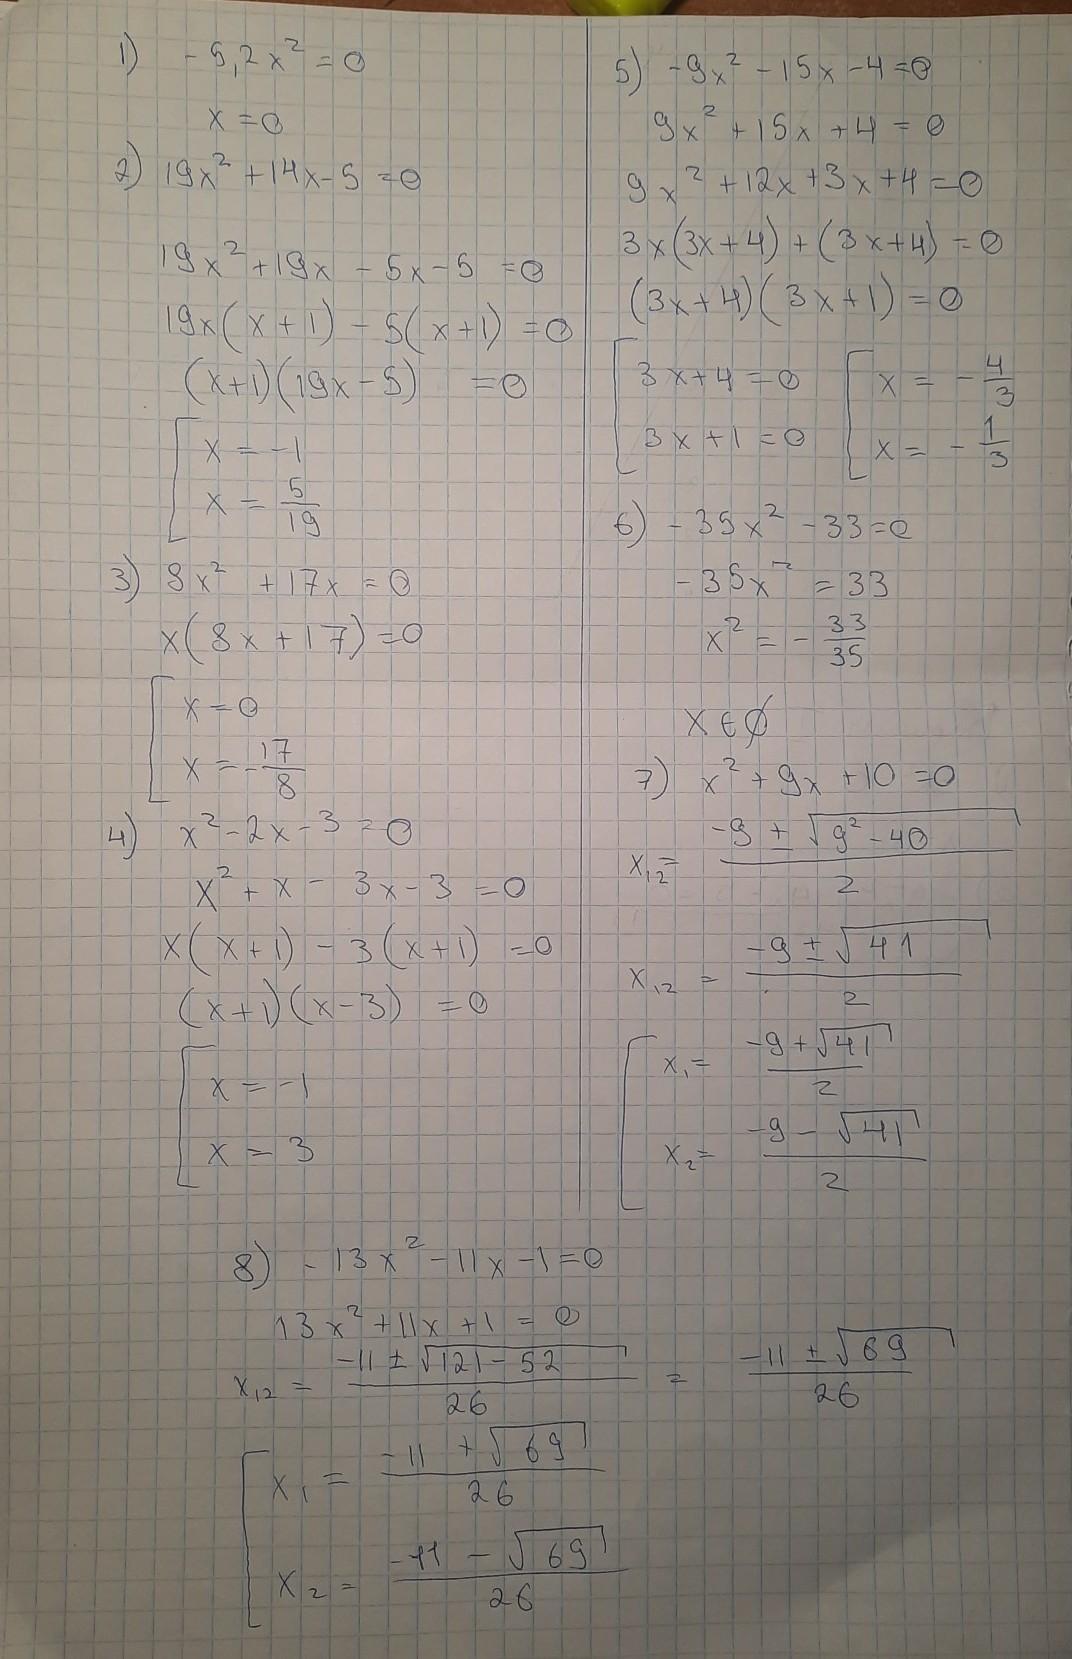 1) -5,2x² = 0
x = 0
2) 19x² + 14x - 5 = 0
19x² + 19x - 5x - 5 = 0
19x(x + 1) - 5(x + 1) = 0
(x + 1)(19x - 5) = 0
[ x = -1
x = 5/19
3) 8x² + 17x = 0
x(8x + 17) = 0
[ x = 0
x = -17/8
4) x² - 2x - 3 = 0
x² + x - 3x - 3 = 0
x(x + 1) - 3(x + 1) = 0
(x + 1)(x - 3) = 0
[ x = -1
x = 3
5) -9x² - 15x - 4 = 0
9x² + 15x + 4 = 0
9x² + 12x + 3x + 4 = 0
3x(3x + 4) + (3x + 4) = 0
(3x + 4)(3x + 1) = 0
[ 3x + 4 = 0 [ x = -4/3
3x + 1 = 0 x = -1/3
6) -35x² - 33 = 0
-35x² = 33
x² = -33/35
x ∈ ∅
7) x² + 9x + 10 = 0
x₁,₂ = (-9 ± √(9² - 40))/2
x₁₂ = (-9 ± √41)/2
[ x₁ = (-9 + √41)/2
x₂ = (-9 - √41)/2
8) -13x² - 11x - 1 = 0
13x² + 11x + 1 = 0
x₁₂ = (-11 ± √(121 - 52))/26 = (-11 ± √69)/26
[ x₁ = (-11 + √69)/26
x₂ = (-11 - √69)/26